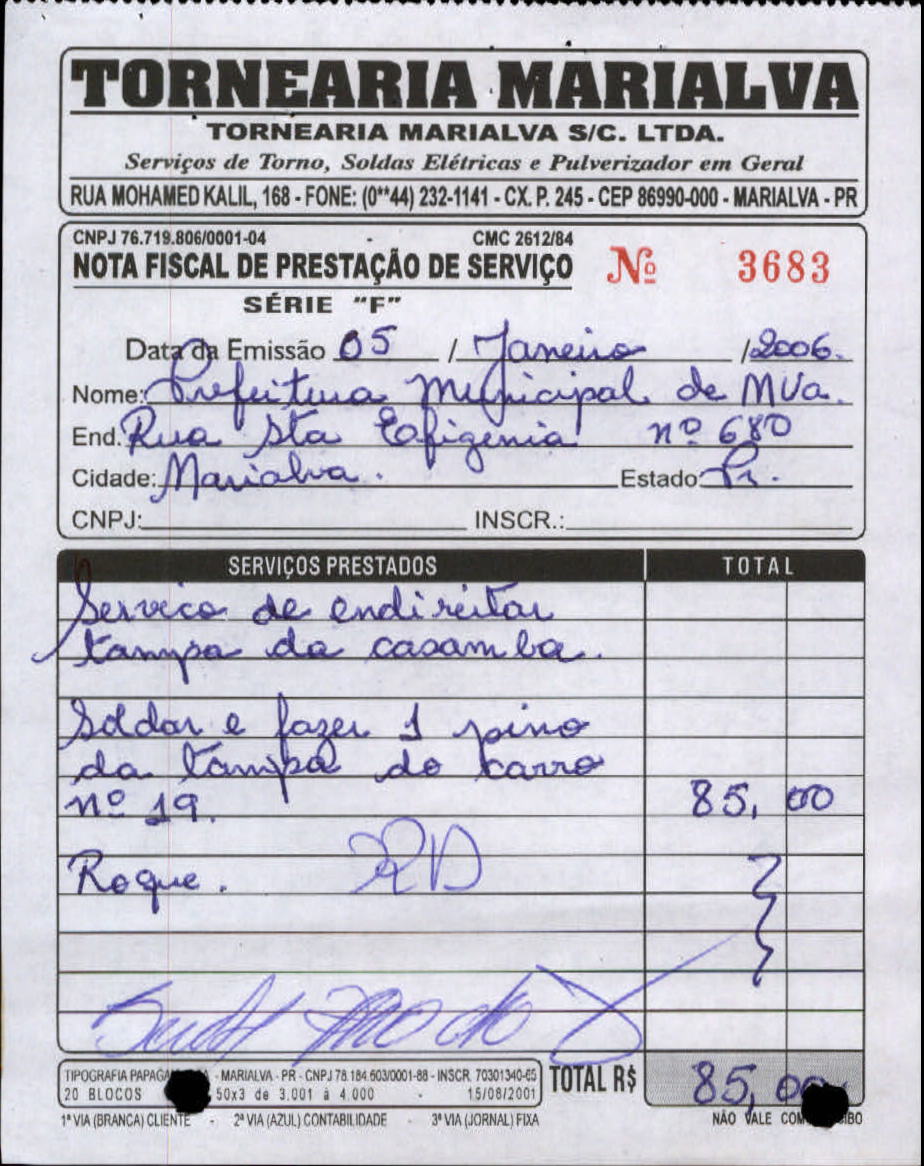 TORNEARIA MARIALVA
TORNEARIA MARIALVA S/C. LTDA.
Serviços de Torno, Soldas Elétricas e Pulverizador em Geral
RUA MOHAMED KALIL, 168 - FONE: (0**44) 232-1141 - CX. P. 245 - CEP 86990-000 - MARIALVA - PR
CNPJ 76.719.806/0001-04 CMC 2612/84
NOTA FISCAL DE PRESTAÇÃO DE SERVIÇO Nº 3683
SÉRIE "F"
Data da Emissão 05 / Janeiro /2006.
Nome: Prefeitura Municipal de MVa.
End. Rua Sta Efigenia nº 680
Cidade: Marialva. Estado Pr.
CNPJ: INSCR.:
SERVIÇOS PRESTADOS TOTAL
Servico de endireitar
tampa da casamba.
Soldar e fazer 1 pino
da tampa do carro
nº 19. 85,00
Roque.
TIPOGRAFIA - MARIALVA - PR - CNPJ 78.184.603/0001-88 - INSCR. 70301340-65
20 BLOCOS 50x3 de 3.001 à 4.000 - 15/08/2001
TOTAL R$ 85,00
1ª VIA (BRANCA) CLIENTE - 2ª VIA (AZUL) CONTABILIDADE - 3ª VIA (JORNAL) FIXA NÃO VALE